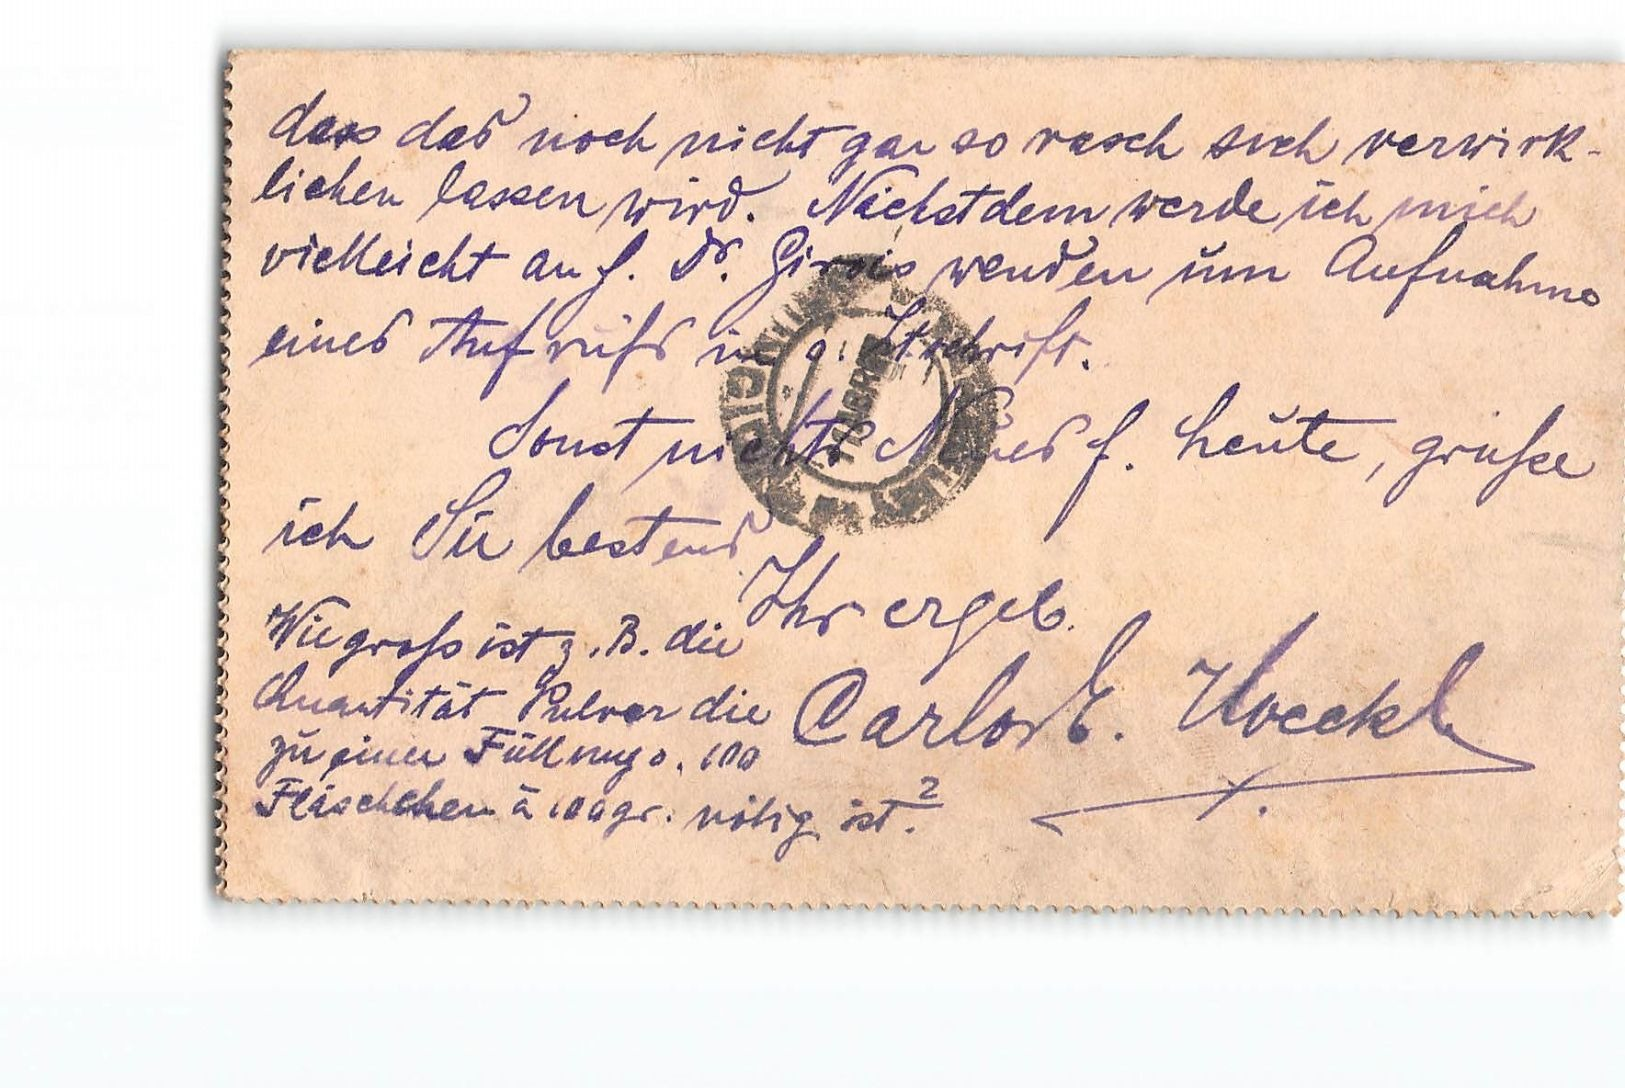 dass das noch nicht gar so rasch sich verwirk-
lichen lassen wird. Nächstdem werde ich mich
vielleicht an H. Dr. wenden um Aufnahme
eines Aufrufs in s. Ztschrift.
Sonst nichts Neues f. heute, grüße
ich Sie bestens
Ihr ergeb.
Carlos E. Hoeckl
Wie groß ist z. B. die
Quantität Pulver die
zu einer Füllung v. 100
Fläschchen à 100 gr. nötig ist?